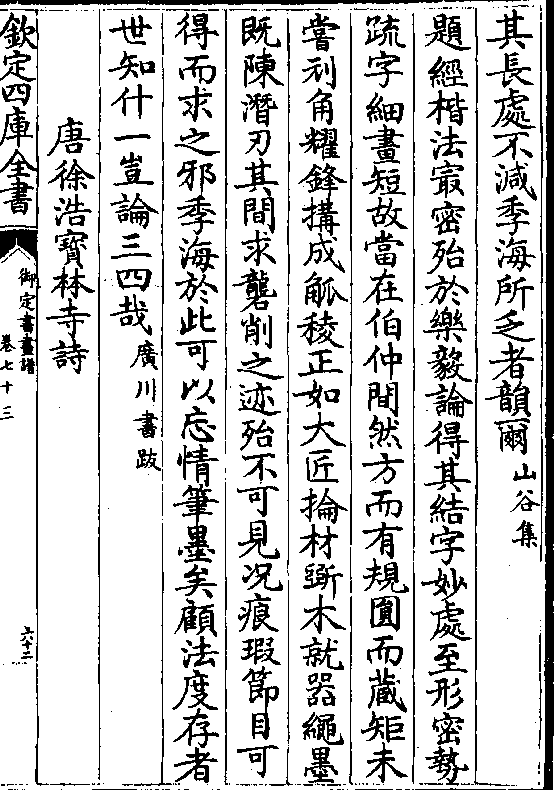 其長處不減季海所乏者韻爾山谷集
題經楷法冣密殆於樂毅論得其結字妙處至形密勢
疏字細畫短故當在伯仲間然方而有規圓而藏矩未
嘗刓角耀鋒搆成觚稜正如大匠掄材斲木就器繩墨
既陳潛刃其間求礱削之迹殆不可見况痕瑕節目可
得而求之邪季海於此可以忘情筆墨矣顧法度存者
世知什一豈論三四哉廣川書跋
唐徐浩寶林寺詩
欽定四庫全書
御定書畫譜
卷七十三
六十二